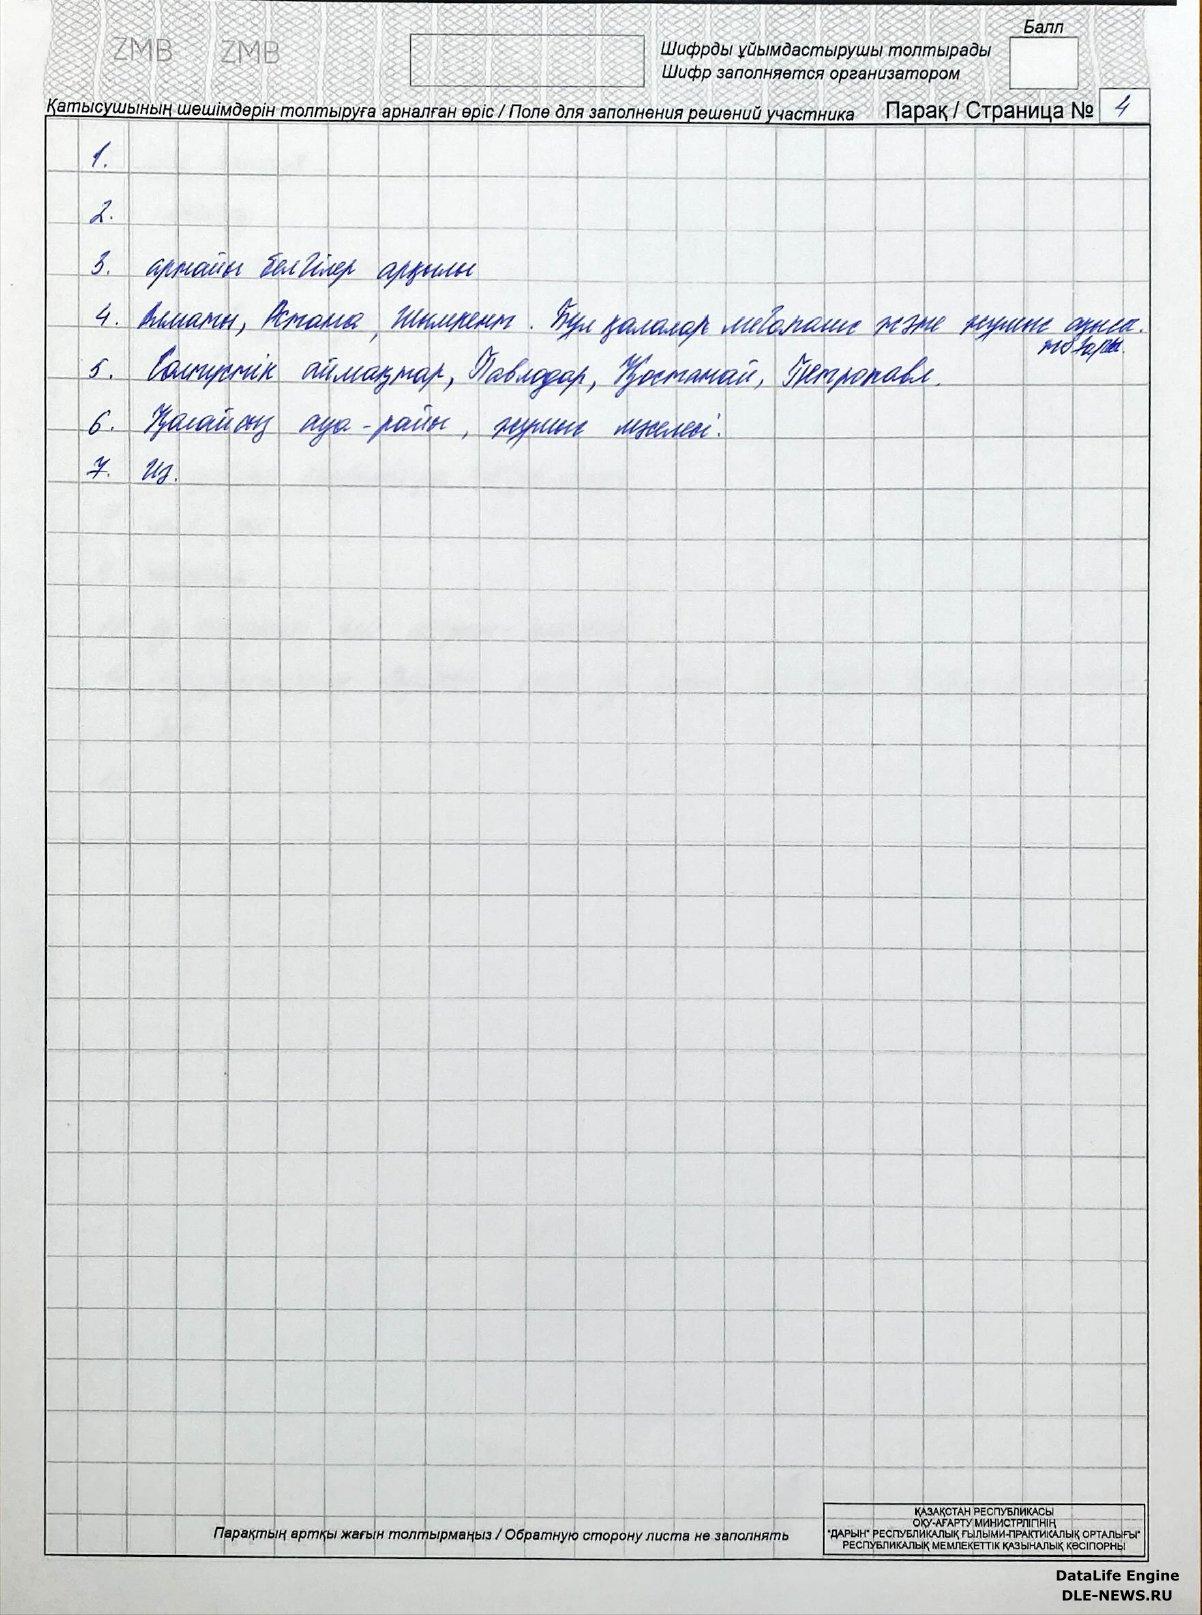 ZMB ZMB
Балл
Шифрды ұйымдастырушы толтырады
Шифр заполняется организатором
Қатысушының шешімдерін толтыруға арналған өріс / Поле для заполнения решений участника Парақ / Страница № 4
1.
2.
3. арнайы белгілер арқылы
4. Алматы, Астана, Шымкент. Бұл қалалар мегополис және жұмыс
5. Солтүстік аймақтар, Павлодар, Қостанай, Петропавл.
6. Қолайсыз ауа-райы, жұмыс мәселесі.
7. Из.
Парақтың артқы жағын толтырмаңыз / Обратную сторону листа не заполнять
ҚАЗАҚСТАН РЕСПУБЛИКАСЫ
ОҚУ-АҒАРТУ МИНИСТРЛІГІНІҢ
"ДАРЫН" РЕСПУБЛИКАЛЫҚ ҒЫЛЫМИ-ПРАКТИКАЛЫҚ ОРТАЛЫҒЫ"
РЕСПУБЛИКАЛЫҚ МЕМЛЕКЕТТІК ҚАЗЫНАЛЫҚ КӘСІПОРНЫ
DataLife Engine
DLE-NEWS.RU